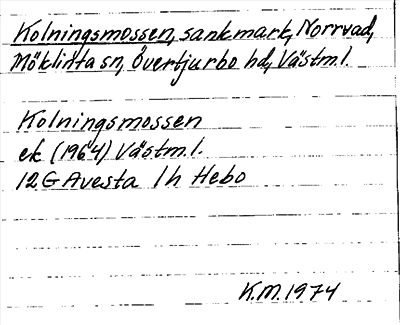 Kolningsmossen, sankmark, Norrvad,
Möklinta sn, Övertjurbo hd, Västml.
Kolningsmossen
ek (1964) Västm.l.
12 G Avesta 1h Hebo
K.M. 1974